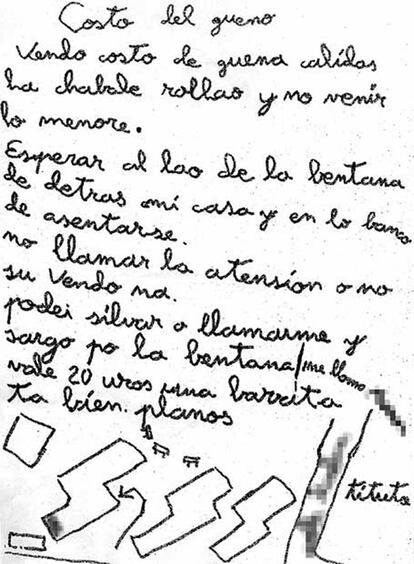 Costo del gueno
Vendo costo de guena calidas
ha chabale rollao y no venir
lo menore.
Esperar al lao de la bentana
de detras mi casa y en lo banco
de asentarse.
no llamar la atensión o no
su Vendo na.
podei silvar o llamarme y
sargo po la bentana/me llamo
vale 20 uros una barrita
ta bien. planos
tituto